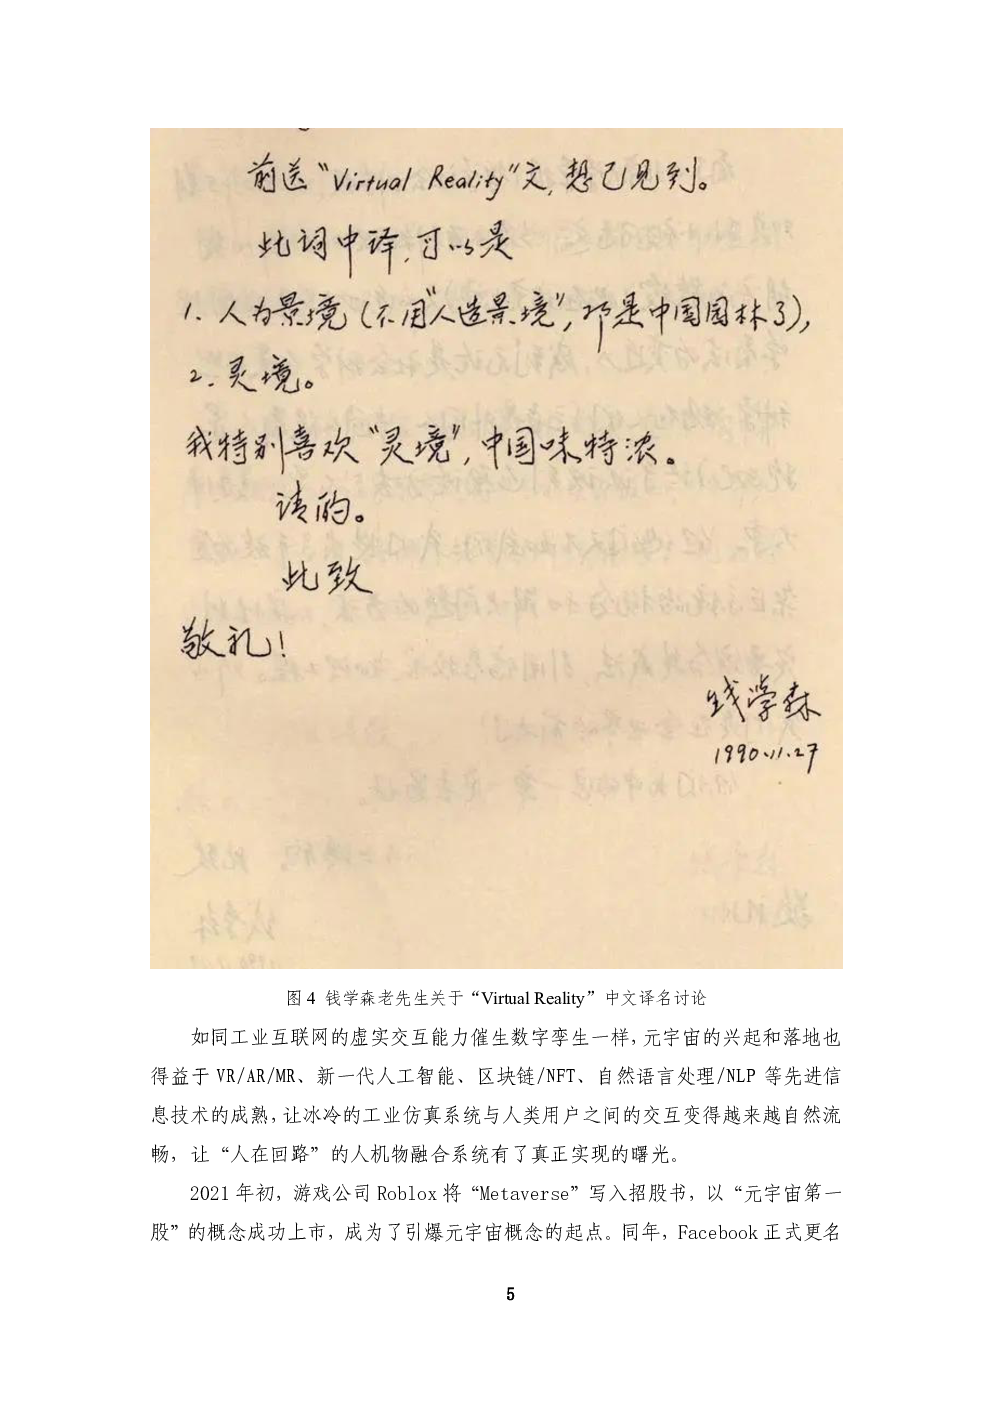 前送“Virtual Reality”文,想已见到。
此词中译,可以是
1. 人为景境(不用“人造景境”,那是中国园林了),
2. 灵境。
我特别喜欢“灵境”,中国味特浓。
请酌。
此致
敬礼!
钱学森
1990.11.27
图 4 钱学森老先生关于“Virtual Reality”中文译名讨论
如同工业互联网的虚实交互能力催生数字孪生一样,元宇宙的兴起和落地也
得益于 VR/AR/MR、新一代人工智能、区块链/NFT、自然语言处理/NLP 等先进信
息技术的成熟,让冰冷的工业仿真系统与人类用户之间的交互变得越来越自然流
畅，让“人在回路”的人机物融合系统有了真正实现的曙光。
2021 年初，游戏公司 Roblox 将“Metaverse”写入招股书，以“元宇宙第一
股”的概念成功上市，成为了引爆元宇宙概念的起点。同年，Facebook 正式更名
5